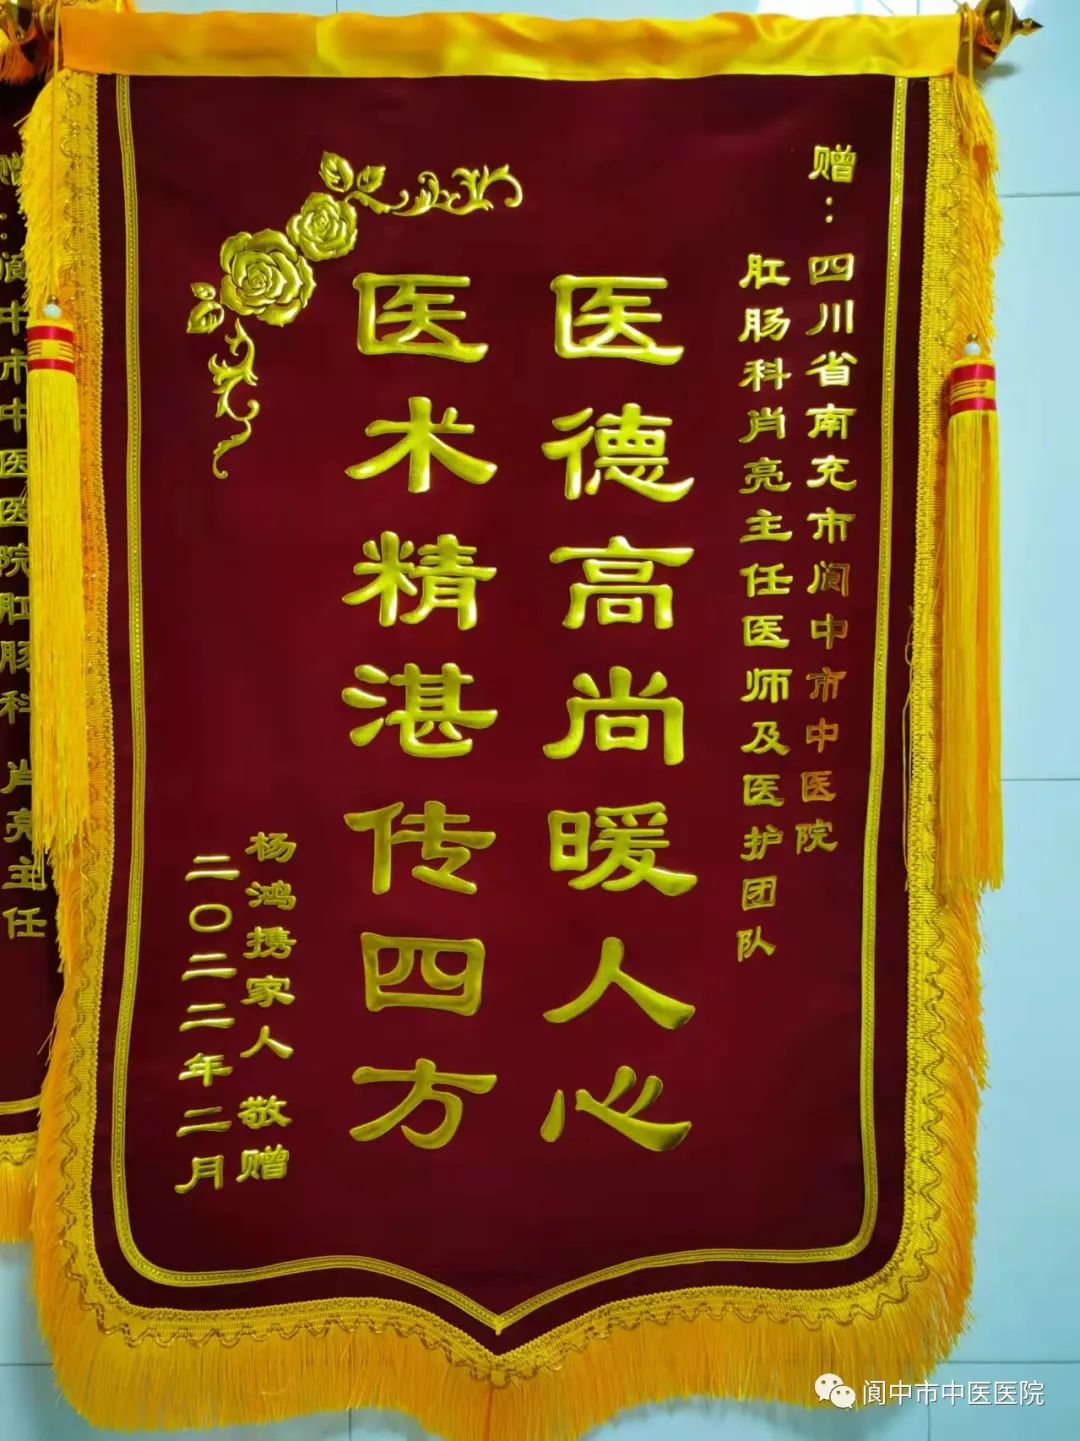 赠：四川省南充市阆中市中医院
肛肠科肖亮主任医师及医护团队
医德高尚暖人心
医术精湛传四方
杨鸿携家人敬赠
二〇二二年二月
赠：阆中市中医医院肛肠科 肖亮主任
阆中市中医医院